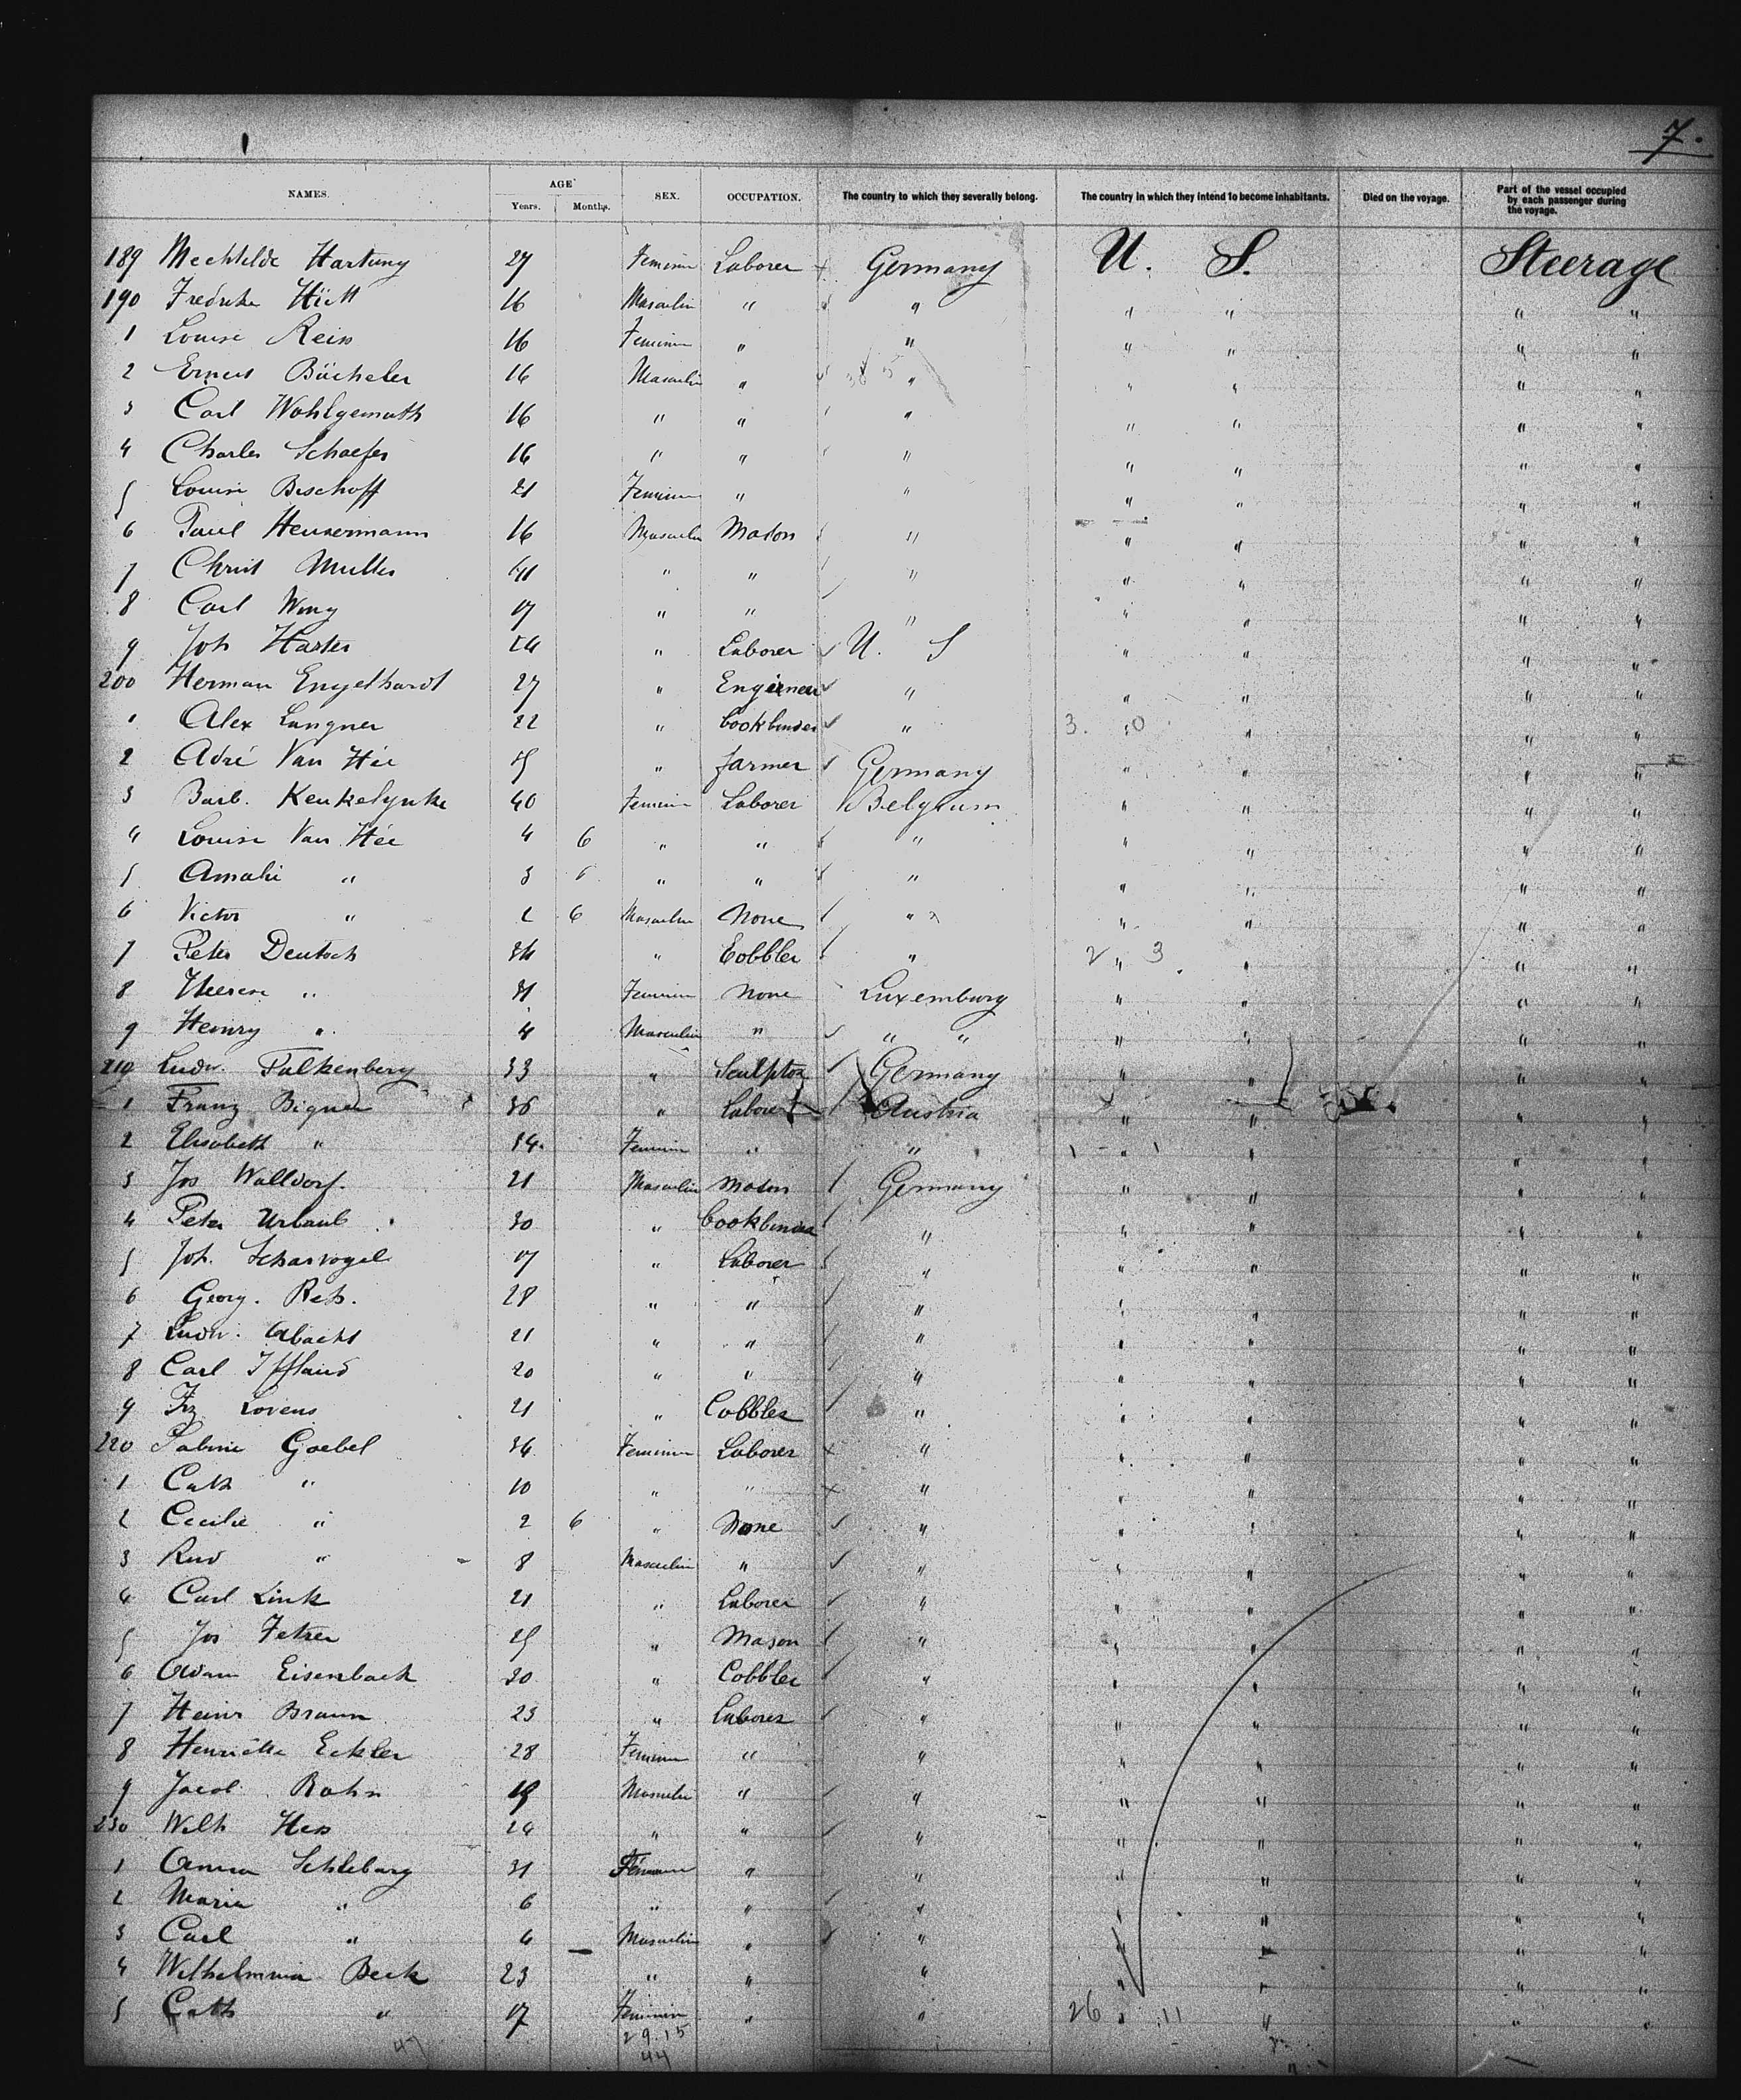 7.
NAMES. AGE Years. Months. SEX. OCCUPATION. The country to which they severally belong. The country in which they intend to become inhabitants. Died on the voyage. Part of the vessel occupied by each passenger during the voyage.
189 Mechtilde Hartung 27 Feminin Laborer Germany U. S. Steerage
190 Fredrike 16 Masculin " " " " " "
1 Louise Reiss 16 Feminin " " " " " "
2 Ernest Bücheler 16 Masculin " " " " " "
3 Carl Wohlgemuth 16 " " " " " " "
4 Charles Schaefer 16 " " " " " " "
5 Louise Bischoff 21 Feminin " " " " " "
6 Paul Heusermann 16 Masculin Mason " " " " "
7 Christ Muller " " " " " " "
8 Carl 17 " " " " " " "
9 Joh Harter " Laborer U. S " " " "
200 Herman Engelhardt 27 " Engineer " " " " "
1 Alex Langner 22 " bookbinder " " " " "
2 Adré Van Hée " farmer Germany " " " "
3 Barb. Keukelynke 40 Feminin Laborer Belgium " " " "
4 Louise Van Hée 4 6 " " " " " " "
5 Amalie " 3 6 " " " " " " "
6 Victor " 6 Masculin None " " " " "
7 Peter Deutsch 34 " Cobbler " " " " "
8 Therese " 31 Feminin None Luxemburg " " " "
9 Henry " 4 Masculin " " " " " " "
210 Ludw. Falkenberg 33 " Sculptor Germany " " " "
1 Franz Bigner 36 " Laborer Austria " " " "
2 Elisabeth " 14. Feminin " " " " " "
3 Jos Walldorf. 21 Masculin Mason Germany " " " "
4 Peter Urbaub 30 " bookbinder " " " " "
5 Joh. Scharvogel 17 " Laborer " " " " "
6 Georg. Reh. 28 " " " " " " "
7 Ludw. 21 " " " " " " "
8 Carl Iffland 20 " " " " " " "
9 Frz Lovens 21 " Cobbler " " " " "
220 Sabine Goebel 36 Feminin Laborer " " " " "
1 Cath " 10 " " " " " " "
2 Cecilie " 2 6 " None " " " " "
3 Rud " 8 Masculin " " " " " "
4 Carl Link 21 " Laborer " " " " "
5 Jos Fetzer 25 " Mason " " " " "
6 Adam Eisenbach 20 " Cobbler " " " " "
7 Heinr Braun 23 " Laborer " " " " "
8 Henriette Eckler 28 Feminin " " " " " "
9 Jacob Rohn 19 Masculin " " " " " "
230 Wilh Hess 24 " " " " " " "
1 Anna Schleburg 31 Feminin " " " " " "
2 Maria " 6 " " " " " " "
3 Carl " 4 Masculin " " " " " "
4 Wilhelmina Beck 23 " " " " " " "
5 Cath " 17 Feminin " " " " " "
26 11
29.15
47 44